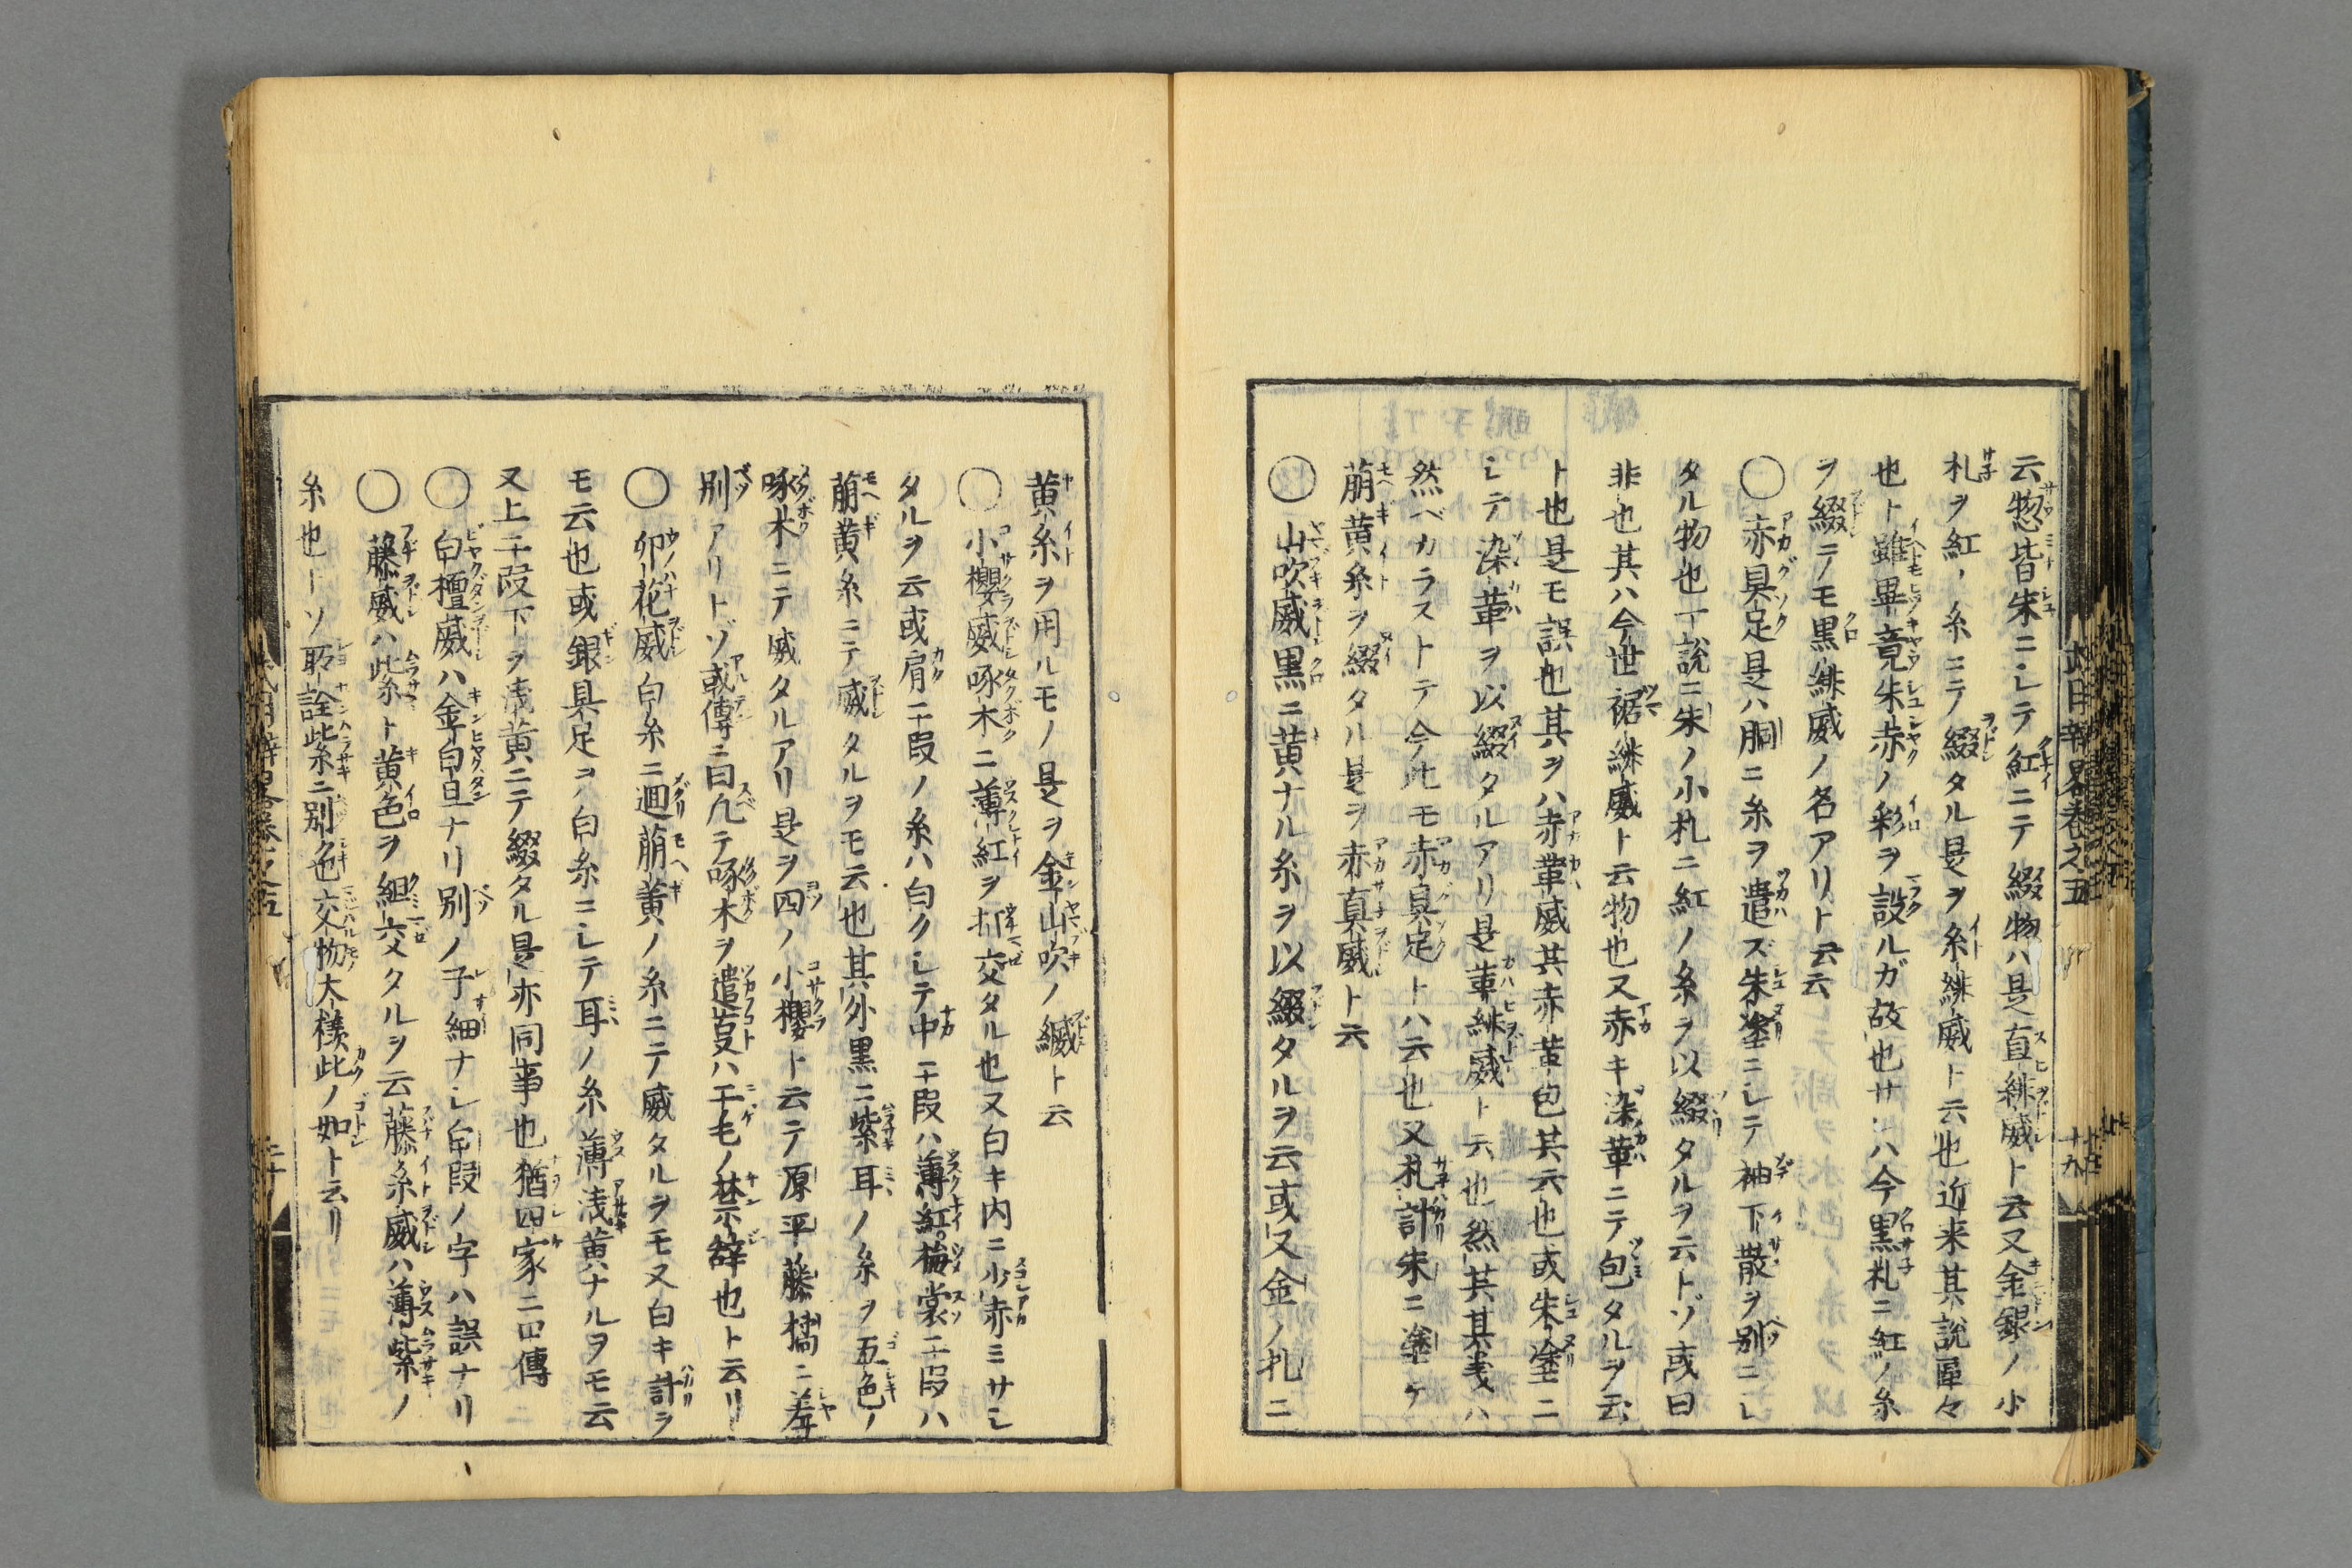 云惣皆朱ニシテ紅ニテ綴物ハ是直緋威ト云又金銀ノ小
札ヲ紅ノ糸ニテ綴タル是ヲ糸緋威ト云也近来其説區々
也ト雖畢竟朱赤ノ彩ヲ設ルガ故也サレハ今黒札ニ紅ノ糸
ヲ綴テモ黒緋威ノ名アリト云云
○赤具足是ハ胴ニ糸ヲ遣ズ朱塗ニシテ袖下散ヲ別ニシ
タル物也一説ニ朱ノ小札ニ紅ノ糸ヲ以綴タルヲ云トゾ或曰
非也其ハ今世裾緋威ト云物也又赤キ染革ニテ包タルヲ云
ト也是モ誤也其ヲハ赤革威其赤革包其云也或朱塗ニ
シテ染革ヲ以綴タルアリ是革緋威ト云也然其其義ハ
然ベカラストテ今比モ赤具足トハ云也又札計朱ニ塗ケ
萠黄糸ヲ綴タル是ヲ赤真威ト云
○山吹威黒ニ黄ナル糸ヲ以綴タルヲ云或又金ノ札ニ
武用辨畧巻之五
十九
黄糸ヲ用ルモノ是ヲ金山吹ノ縅ト云
○小櫻威啄木ニ薄紅ヲ打交タル也又白キ内ニ少赤ミサシ
タルヲ云或肩二段ノ糸ハ白クシテ中二段ハ薄紅梅裳二段ハ
萠黄糸ニテ威タルヲモ云也其外黒ニ紫耳ノ糸ヲ五色ノ
啄木ニテ威タルアリ是ヲ四ノ小櫻ト云テ源平藤橘ニ差
別アリトゾ或傳ニ曰凢テ啄木ヲ遣叓ハ二毛ノ禁辞也ト云リ
○卯花威白糸ニ廻萠黄ノ糸ニテ威タルヲモ又白キ計ヲ
モ云也或銀具足ヲ白糸ニシテ耳ノ糸薄浅黄ナルヲモ云
又上二段下ヲ浅黄ニテ綴タル是亦同事也猶四家ニ口傳
○白檀威ハ金白旦ナリ別ノ子細ナシ白段ノ字ハ誤ナリ
○藤威ハ紫糸ト黄色ヲ組交タルヲ云藤糸威ハ薄紫ノ
糸也トソ所詮紫ニ別色交物大様此ノ如ト云リ
武用辨畧巻之五
二十